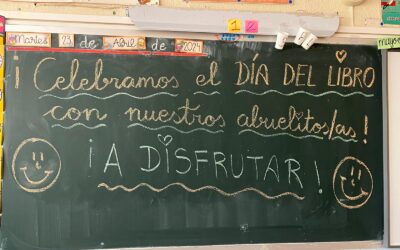 Martes 23 de Abril de 2024
1 2
¡Celebramos el DÍA DEL LIBRO
con nuestros abuelitos/as!
¡A DISFRUTAR!